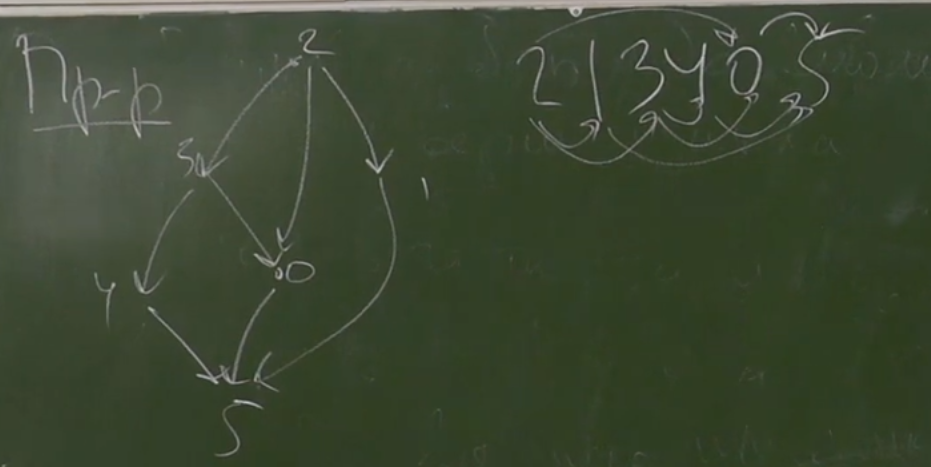 Пр-р
2
3
1
4
0
5
2 1 3 4 0 5